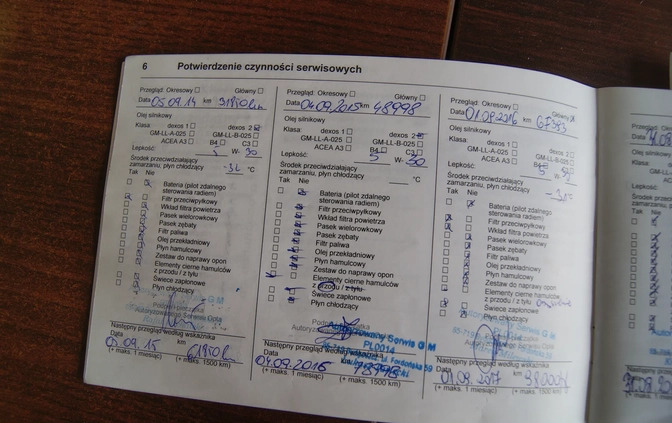 6 Potwierdzenie czynności serwisowych
Przegląd: Okresowy Główny
Data 05.09.14 km 31850 km
Olej silnikowy
Klasa: dexos 1 dexos 2
GM-LL-A-025 GM-LL-B-025
ACEA A3 B4 C3
Lepkość: 5 W- 30
Środek przeciwdziałający
zamarzaniu, płyn chłodzący °C
Tak Nie
Bateria (pilot zdalnego
sterowania radiem)
Filtr przeciwpyłkowy
Wkład filtra powietrza
Pasek wielorowkowy
Pasek zębaty
Filtr paliwa
Olej przekładniowy
Płyn hamulcowy
Zestaw do naprawy opon
Elementy cierne hamulców
z przodu / z tyłu
Świece zapłonowe
Płyn chłodzący
Następny przegląd według wskaźnika
Data km
05.09.15 61850 km
(+ maks. 1 miesiąc) (+ maks. 1500 km)
Przegląd: Okresowy Główny
Data 04.09.2015 km 48998
Olej silnikowy
Klasa: dexos 1 dexos 2
GM-LL-A-025 GM-LL-B-025
ACEA A3 B4 C3
Lepkość: 5 W- 30
Środek przeciwdziałający
zamarzaniu, płyn chłodzący °C
Tak Nie
Bateria (pilot zdalnego
sterowania radiem)
Filtr przeciwpyłkowy
Wkład filtra powietrza
Pasek wielorowkowy
Pasek zębaty
Filtr paliwa
Olej przekładniowy
Płyn hamulcowy
Zestaw do naprawy opon
Elementy cierne hamulców
z przodu / z tyłu
Świece zapłonowe
Płyn chłodzący
Serwis GM
PL0014
Następny przegląd według wskaźnika
Data
04.09.2016
(+ maks. 1 miesiąc) (+ maks. 1500 km)
Przegląd: Okresowy Główny
Data 01.09.2016 km 67353
Olej silnikowy
Klasa: dexos 1 dexos 2
GM-LL-A-025 GM-LL-B-025
ACEA A3 B4 C3
Lepkość: 5 W-
Środek przeciwdziałający
zamarzaniu, płyn chłodzący °C
Tak Nie
Bateria (pilot zdalnego
sterowania radiem)
Filtr przeciwpyłkowy
Wkład filtra powietrza
Pasek wielorowkowy
Pasek zębaty
Filtr paliwa
Olej przekładniowy
Płyn hamulcowy
Zestaw do naprawy opon
Elementy cierne hamulców
z przodu / z tyłu
Świece zapłonowe
Płyn chłodzący
Następny przegląd według wskaźnika
Data km
01.09.2017
(+ maks. 1 miesiąc) (+ maks. 1500 km)